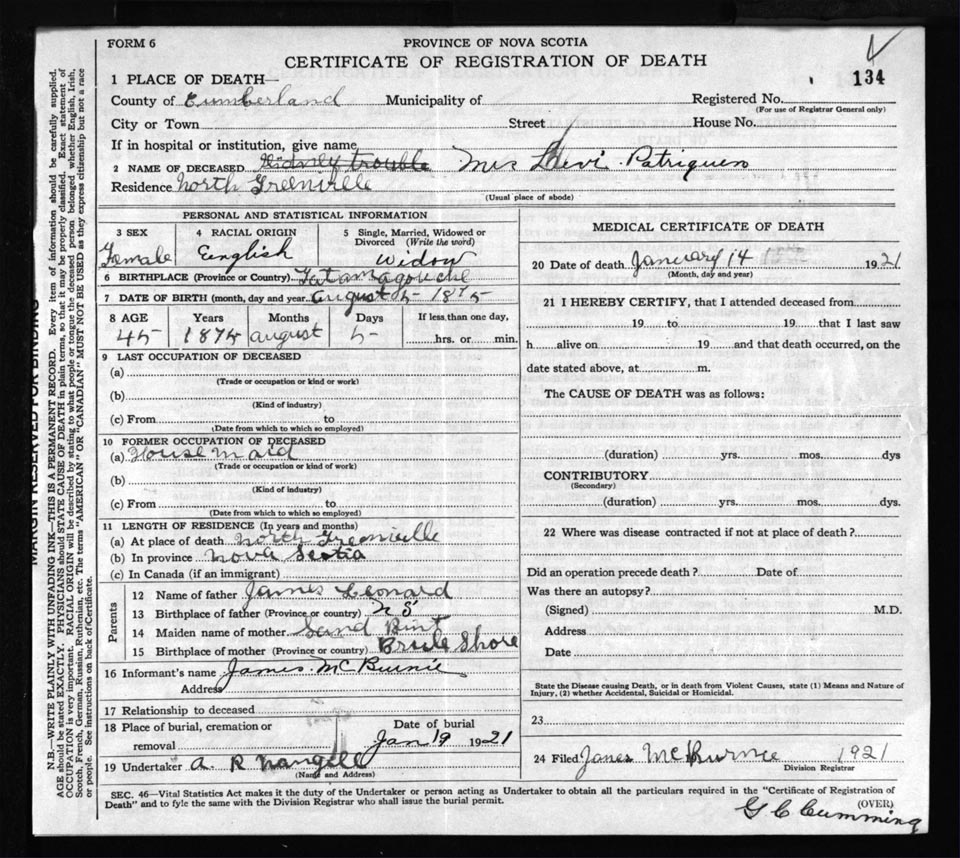 FORM 6
PROVINCE OF NOVA SCOTIA
CERTIFICATE OF REGISTRATION OF DEATH
134
1 PLACE OF DEATH—
County of Cumberland Municipality of Registered No.
(For use of Registrar General only)
City or Town Street House No.
If in hospital or institution, give name
2 NAME OF DECEASED Kidney trouble Mrs Levi Patriquin
Residence North Greenville
(Usual place of abode)
PERSONAL AND STATISTICAL INFORMATION
3 SEX 4 RACIAL ORIGIN 5 Single, Married, Widowed or Divorced (Write the word)
Female English Widow
6 BIRTHPLACE (Province or Country) Tatamagouche
7 DATE OF BIRTH (month, day and year August 5- 1875
8 AGE Years Months Days If less than one day,
45 1875 August 5- hrs. or min.
9 LAST OCCUPATION OF DECEASED
(a)
(Trade or occupation or kind or work)
(b)
(Kind of industry)
(c) From to
(Date from which to which so employed)
10 FORMER OCCUPATION OF DECEASED
(a) House maid
(Trade or occupation or kind of work)
(b)
(Kind of industry)
(c) From to
(Date from which to which so employed)
11 LENGTH OF RESIDENCE (In years and months)
(a) At place of death North Greenville
(b) In province Nova Scotia
(c) In Canada (if an immigrant)
Parents
12 Name of father James Leonard
13 Birthplace of father (Province or country) N S
14 Maiden name of mother
15 Birthplace of mother (Province or country) Brule Shore
16 Informant's name James McBurnie
Address
17 Relationship to deceased
18 Place of burial, cremation or removal Date of burial
Jan 19 1921
19 Undertaker A. R
(Name and Address)
MEDICAL CERTIFICATE OF DEATH
20 Date of death January 14 1921
(Month, day and year)
21 I HEREBY CERTIFY, that I attended deceased from
19 to 19 that I last saw
h alive on 19 and that death occurred, on the
date stated above, at m.
The CAUSE OF DEATH was as follows:
(duration) yrs. mos. dys
CONTRIBUTORY
(Secondary)
(duration) yrs. mos. dys.
22 Where was disease contracted if not at place of death?
Did an operation precede death? Date of
Was there an autopsy?
(Signed) M.D.
Address
Date
State the Disease causing Death, or in death from Violent Causes, state (1) Means and Nature of
Injury, (2) whether Accidental, Suicidal or Homicidal.
23
24 Filed James McBurnie 1921
Division Registrar
SEC. 46—Vital Statistics Act makes it the duty of the Undertaker or person acting as Undertaker to obtain all the particulars required in the "Certificate of Registration of
Death" and to fyle the same with the Division Registrar who shall issue the burial permit.
(OVER)
G C Cumming
MARGIN RESERVED FOR BINDING
N.B.—WRITE PLAINLY WITH UNFADING INK—THIS IS A PERMANENT RECORD. Every item of information should be carefully supplied.
AGE should be stated EXACTLY. PHYSICIANS should STATE CAUSE OF DEATH in plain terms, so that it may be properly classified. Exact statement of
OCCUPATION is very important. RACIAL ORIGIN will be described by stating to what people or tongue the deceased person belonged, whether English, Irish,
Scotch, French, German, Russian, Ruthenian, etc. The terms "AMERICAN" OR "CANADIAN" MUST NOT BE USED as they express citizenship but not a race
or people. See instructions on back of Certificate.